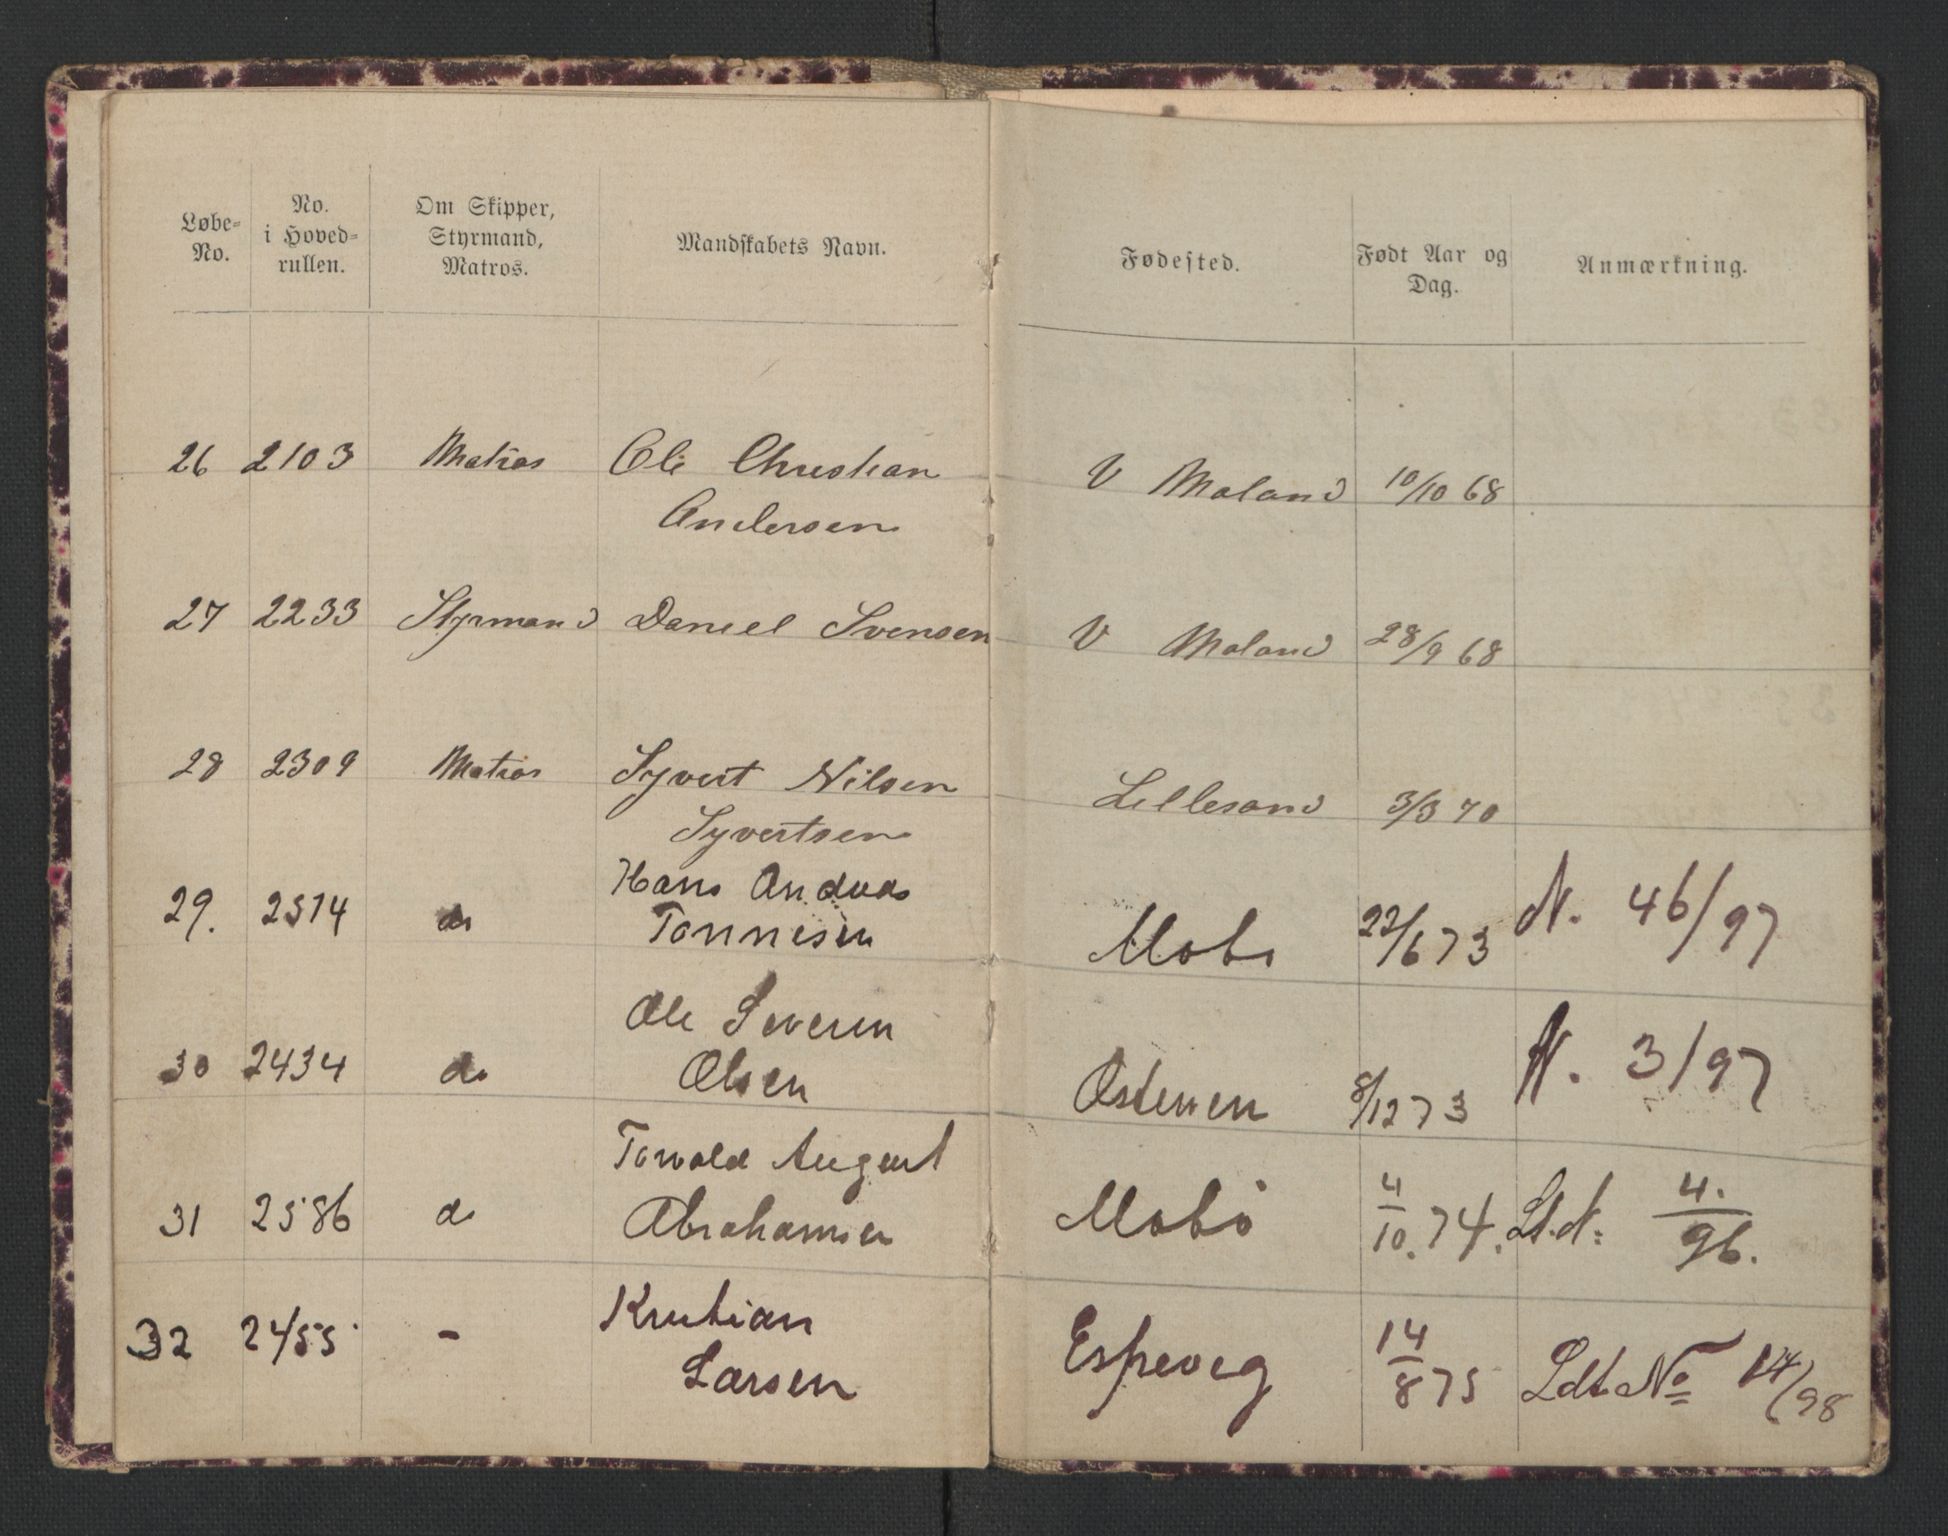 Løbe-No. No. i Hoved-rullen. Om Skipper, Styrmand, Matros. Mandskabets Navn. Fødested. Født Aar og Dag. Anmærkning.
26 2103 Matros Ole Christian V Moland 10/10 68
Andersen
27 2233 Styrmand Daniel Svensen V Moland 28/9 68
28 2309 Matros Syvert Nilsen Lillesand 3/3 70
Syvertsen
Hans Andreas
29. 2514 do Tønnesen 22/6 73 N. 46/97
Ole Severin
30 2434 do Olsen 8/12 73 N. 3/97
Torvald August
31 2586 do Abrahamsen 4/10. 74. Ld. N: 4./96.
Kristian
32 2455 - Larsen Espeveg 14/8 75 Ldt. No 14/98